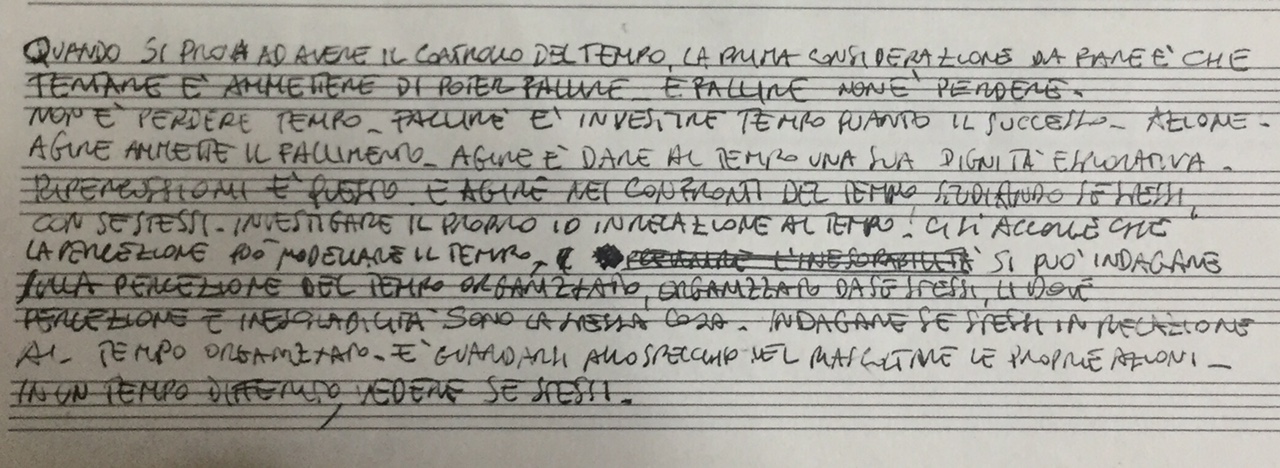 QUANDO SI PROVA AD AVERE IL CONTROLLO DEL TEMPO, LA PRIMA CONSIDERAZIONE DA FARE È CHE
TENTARE È AMMETTERE DI POTER FALLIRE. E FALLIRE NON È PERDERE.
NON È PERDERE TEMPO. FALLIRE È INVESTIRE TEMPO QUANTO IL SUCCESSO. AZIONE.
AGIRE AMMETTE IL FALLIMENTO. AGIRE È DARE AL TEMPO UNA SUA DIGNITÀ ESPLORATIVA.
RIPERCUSSIONI È QUESTO. È AGIRE NEI CONFRONTI DEL TEMPO STUDIANDO SE STESSI,
CON SE STESSI. INVESTIGARE IL PROPRIO IO IN RELAZIONE AL TEMPO. CI SI ACCORGE CHE
LA PERCEZIONE PUÒ MODELLARE IL TEMPO, E SI PUÒ INDAGARE
SULLA PERCEZIONE DEL TEMPO ORGANIZZATO, ORGANIZZATO DA SE STESSI, LÌ DOVE
PERCEZIONE E SONO LA STESSA COSA. INDAGARE SE STESSI IN RELAZIONE
AL TEMPO ORGANIZZATO. È GUARDARSI ALLO SPECCHIO NEL RIASCOLTARE LE PROPRIE AZIONI.
IN UN TEMPO DIFFERITO, VEDERE SE STESSI.